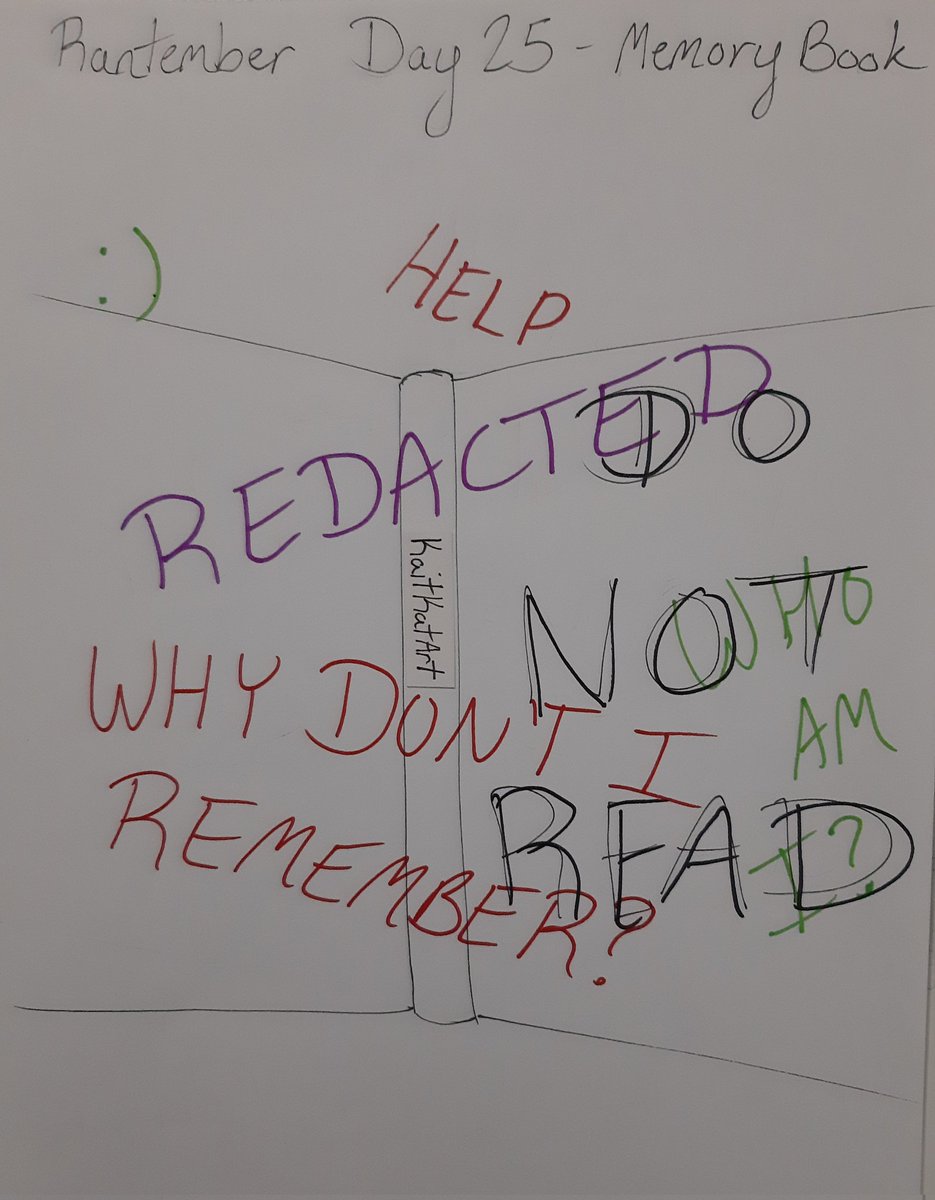 Rantember Day 25 - Memory Book
:)
HELP
REDACTED
DO
NOT
READ
KaitKatArt
WHO
AM
I?
WHY DON'T I
REMEMBER?